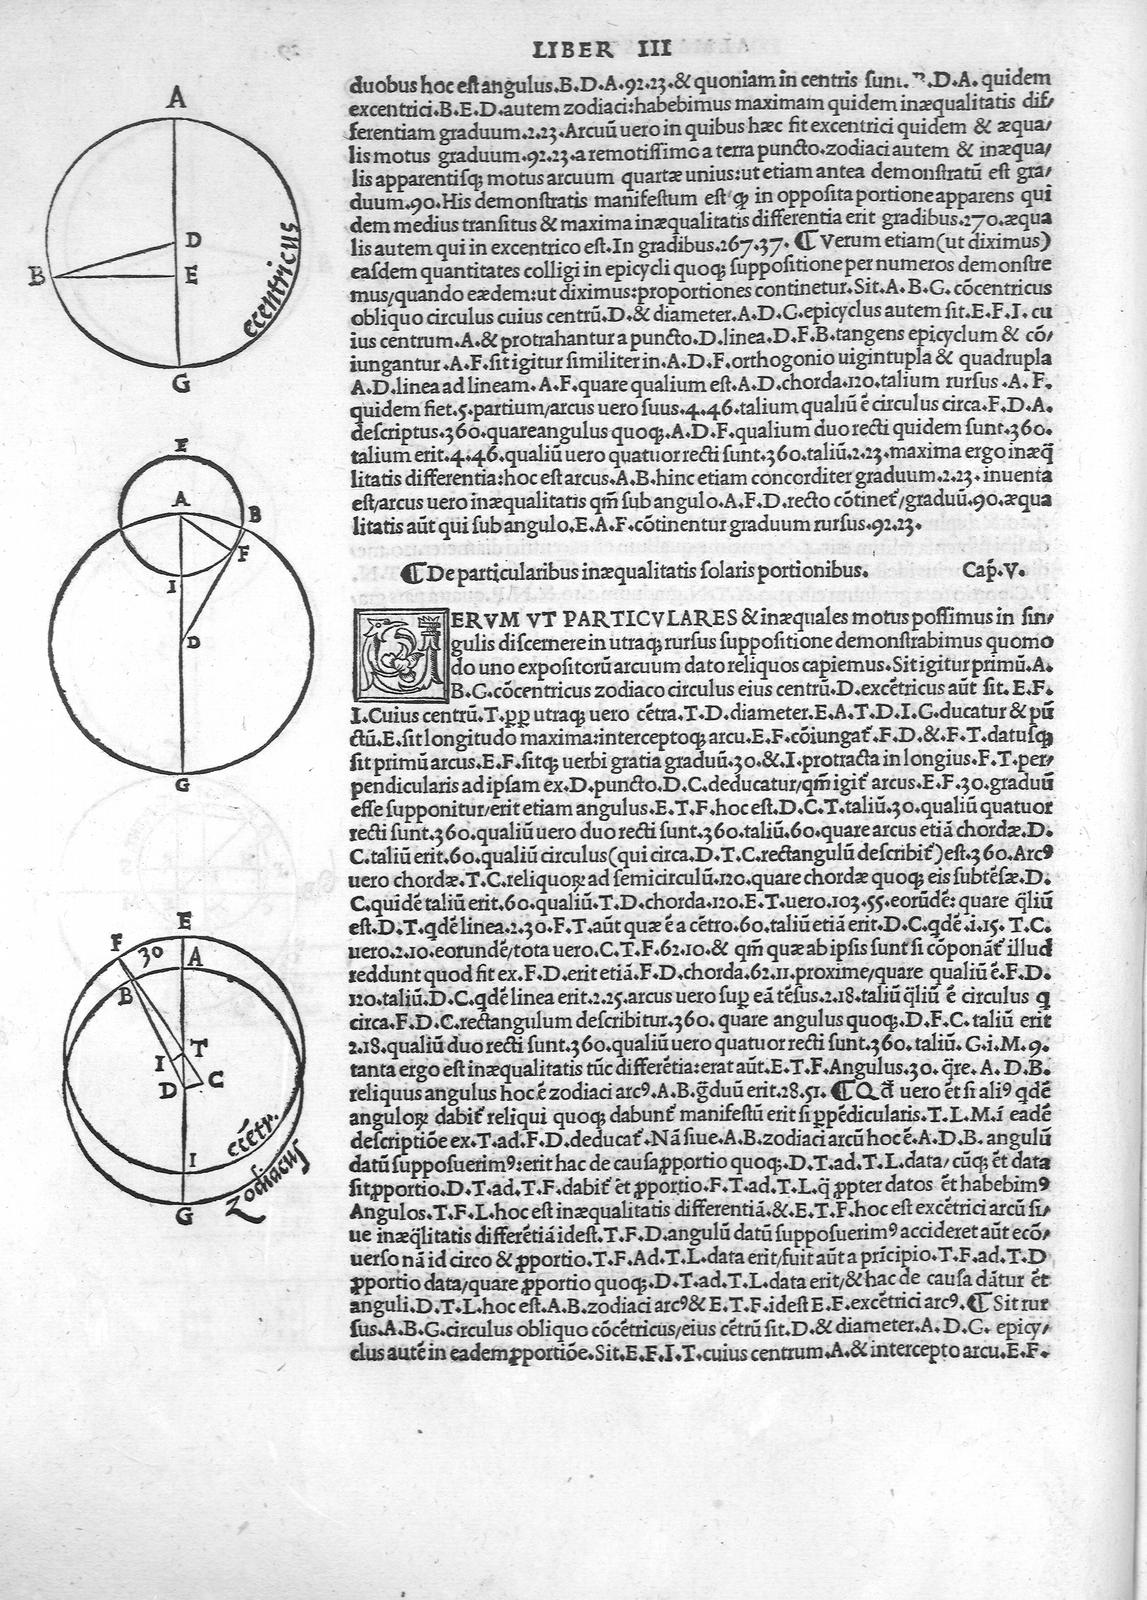 LIBER III
duobus hoc est angulus.B.D.A.92.23.& quoniam in centris sunt. .D.A. quidem
excentrici.B.E.D.autem zodiaci:habebimus maximam quidem inæqualitatis dif/
ferentiam graduum.2.23.Arcuū uero in quibus hæc fit excentrici quidem & æqua/
lis motus graduum.92.23.a remotissimo a terra puncto.zodiaci autem & inæqua/
lis apparentisq; motus arcuum quartæ unius:ut etiam antea demonstratū est gra/
duum.90.His demonstratis manifestum est ꝙ in opposita portione apparens qui
dem medius transitus & maxima inæqualitatis differentia erit gradibus.270.æqua
lis autem qui in excentrico est.In gradibus.267.37. ¶ Verum etiam(ut diximus)
easdem quantitates colligi in epicycli quoq; suppositione per numeros demonstre
mus/quando eædem:ut diximus:proportiones continetur.Sit.A.B.G. cōcentricus
obliquo circulus cuius centrū.D.& diameter.A.D.G.epicyclus autem sit.E.F.I. cu
ius centrum.A.& protrahantur a puncto.D.linea.D.F.B.tangens epicyclum & cō/
iungantur.A.F.sit igitur similiter in.A.D.F.orthogonio uigintupla & quadrupla
A.D.linea ad lineam.A.F.quare qualium est.A.D.chorda.120.talium rursus .A.F.
quidem fiet.5.partium/arcus uero suus.4.46.talium qualiū ē circulus circa.F.D.A.
descriptus.360.quareangulus quoq;.A.D.F.qualium duo recti quidem sunt.360.
talium erit.4.46.qualiū uero quatuor recti sunt.360.taliū.2.23.maxima ergo inæq̄
litatis differentia:hoc est arcus.A.B.hinc etiam concorditer graduum.2.23.inuenta
est/arcus uero inæqualitatis qm̄ sub angulo.A.F.D.recto cōtinet᷑/graduū.90.æqua
litatis aūt qui sub angulo.E.A.F.cōtinentur graduum rursus.92.23.
¶ De particularibus inæqualitatis solaris portionibus. Cap̄.V.
ERVM VT PARTICVLARES & inæquales motus possimus in sin/
gulis discernere in utraq; rursus suppositione demonstrabimus quomo
do uno expositorū arcuum dato reliquos capiemus.Sit igitur primū.A.
B.G.cōcentricus zodiaco circulus eius centrū.D.excētricus aūt sit.E.F.
I.Cuius centrū.T.ꝓp utraq; uero cētra.T.D.diameter.E.A.T.D.I.G.ducatur & pū
ctū.E.sit longitudo maxima:interceptoq; arcu.E.F.cōiungat᷑.F.D.&.F.T.datusq;
sit primū arcus.E.F.sitq; uerbi gratia graduū.30.&.I.protracta in longius.F.T.per/
pendicularis ad ipsam ex.D.puncto.D.C.deducatur/qm̄ igit᷑ arcus.E.F.30.graduū
esse supponitur/erit etiam angulus.E.T.F.hoc est.D.C.T.taliū.30.qualiū quatuor
recti sunt.360.qualiū uero duo recti sunt.360.taliū.60.quare arcus etiā chordæ.D.
C.taliū erit.60.qualiū circulus(qui circa.D.T.C.rectangulū describit᷑)est.360.Arcꝰ
uero chordæ.T.C.reliquoꝝ ad semicirculū.120.quare chordæ quoq; eis subtēsæ.D.
C.quidē taliū erit.60.qualiū.T.D.chorda.120.E.T.uero.103.55.eorūdē: quare q̄liū
est.D.T.qdē linea.2.30.F.T.aūt quæ ē a cētro.60.taliū etiā erit.D.C.qdē.1.15. T.C.
uero.2.10.eorundē/tota uero.C.T.F.62.10.& qm̄ quæ ab ipsis sunt si cōponāt᷑ illud
reddunt quod fit ex.F.D.erit etiā.F.D.chorda.62.11.proxime/quare qualiū ē.F.D.
120.taliū.D.C.qdē linea erit.2.25.arcus uero sup eā tēsus.2.18.taliū q̄liū ē circulus q
circa.F.D.C.rectangulum describitur.360. quare angulus quoq;.D.F.C. taliū erit
2.18.qualiū duo recti sunt.360.qualiū uero quatuor recti sunt.360. taliū. G.i.M.9.
tanta ergo est inæqualitatis tūc differētia:erat aūt.E.T.F.Angulus.30.q̄re.A.D.B.
reliquus angulus hoc ē zodiaci arcꝰ.A.B.g̃duū erit.28.51.¶ Qđ uero et si aliꝰ qdē
anguloꝝ dabit᷑ reliqui quoq; dabunt᷑ manifestū erit si ꝑpēdicularis.T.L.M.ī eadē
descriptiōe ex.T.ad.F.D.deducat᷑.Nā siue.A.B.zodiaci arcū hoc ē.A.D.B. angulū
datū supposuerimꝰ:erit hac de causa ꝓportio quoq;.D.T.ad.T.L.data/cūq; et data
sit ꝓportio.D.T.ad.T.F.dabit᷑ et ꝓportio.F.T.ad.T.L.q̄ ꝓpter datos et habebimꝰ
Angulos.T.F.L.hoc est inæqualitatis differentiā.&.E.T.F.hoc est excētrici arcū si/
ue inæq̄litatis differētiā idest.T.F.D.angulū datū supposuerimꝰ accideret aūt ecō/
uerso nā id circo & ꝓportio.T.F.Ad.T.L.data erit/fuit aūt a prīcipio.T.F.ad.T.D
ꝓportio data/quare ꝓportio quoq;.D.T.ad.T.L.data erit/& hac de causa dātur et
anguli.D.T.L.hoc est.A.B.zodiaci arcꝰ& E.T.F.idest E.F.excētrici arcꝰ.¶ Sit rur
sus.A.B.G.circulus obliquo cōcētricus/eius cētrū sit.D.& diameter.A.D.G. epicy/
clus autē in eadem ꝓportiōe.Sit.E.F.I.T.cuius centrum.A.& intercepto arcu.E.F.
A
D
B
E
G
ecentricus
E
A
B
F
I
D
G
E
F
30
A
B
T
I
D
C
I
G
ecētr.
Zodiacus